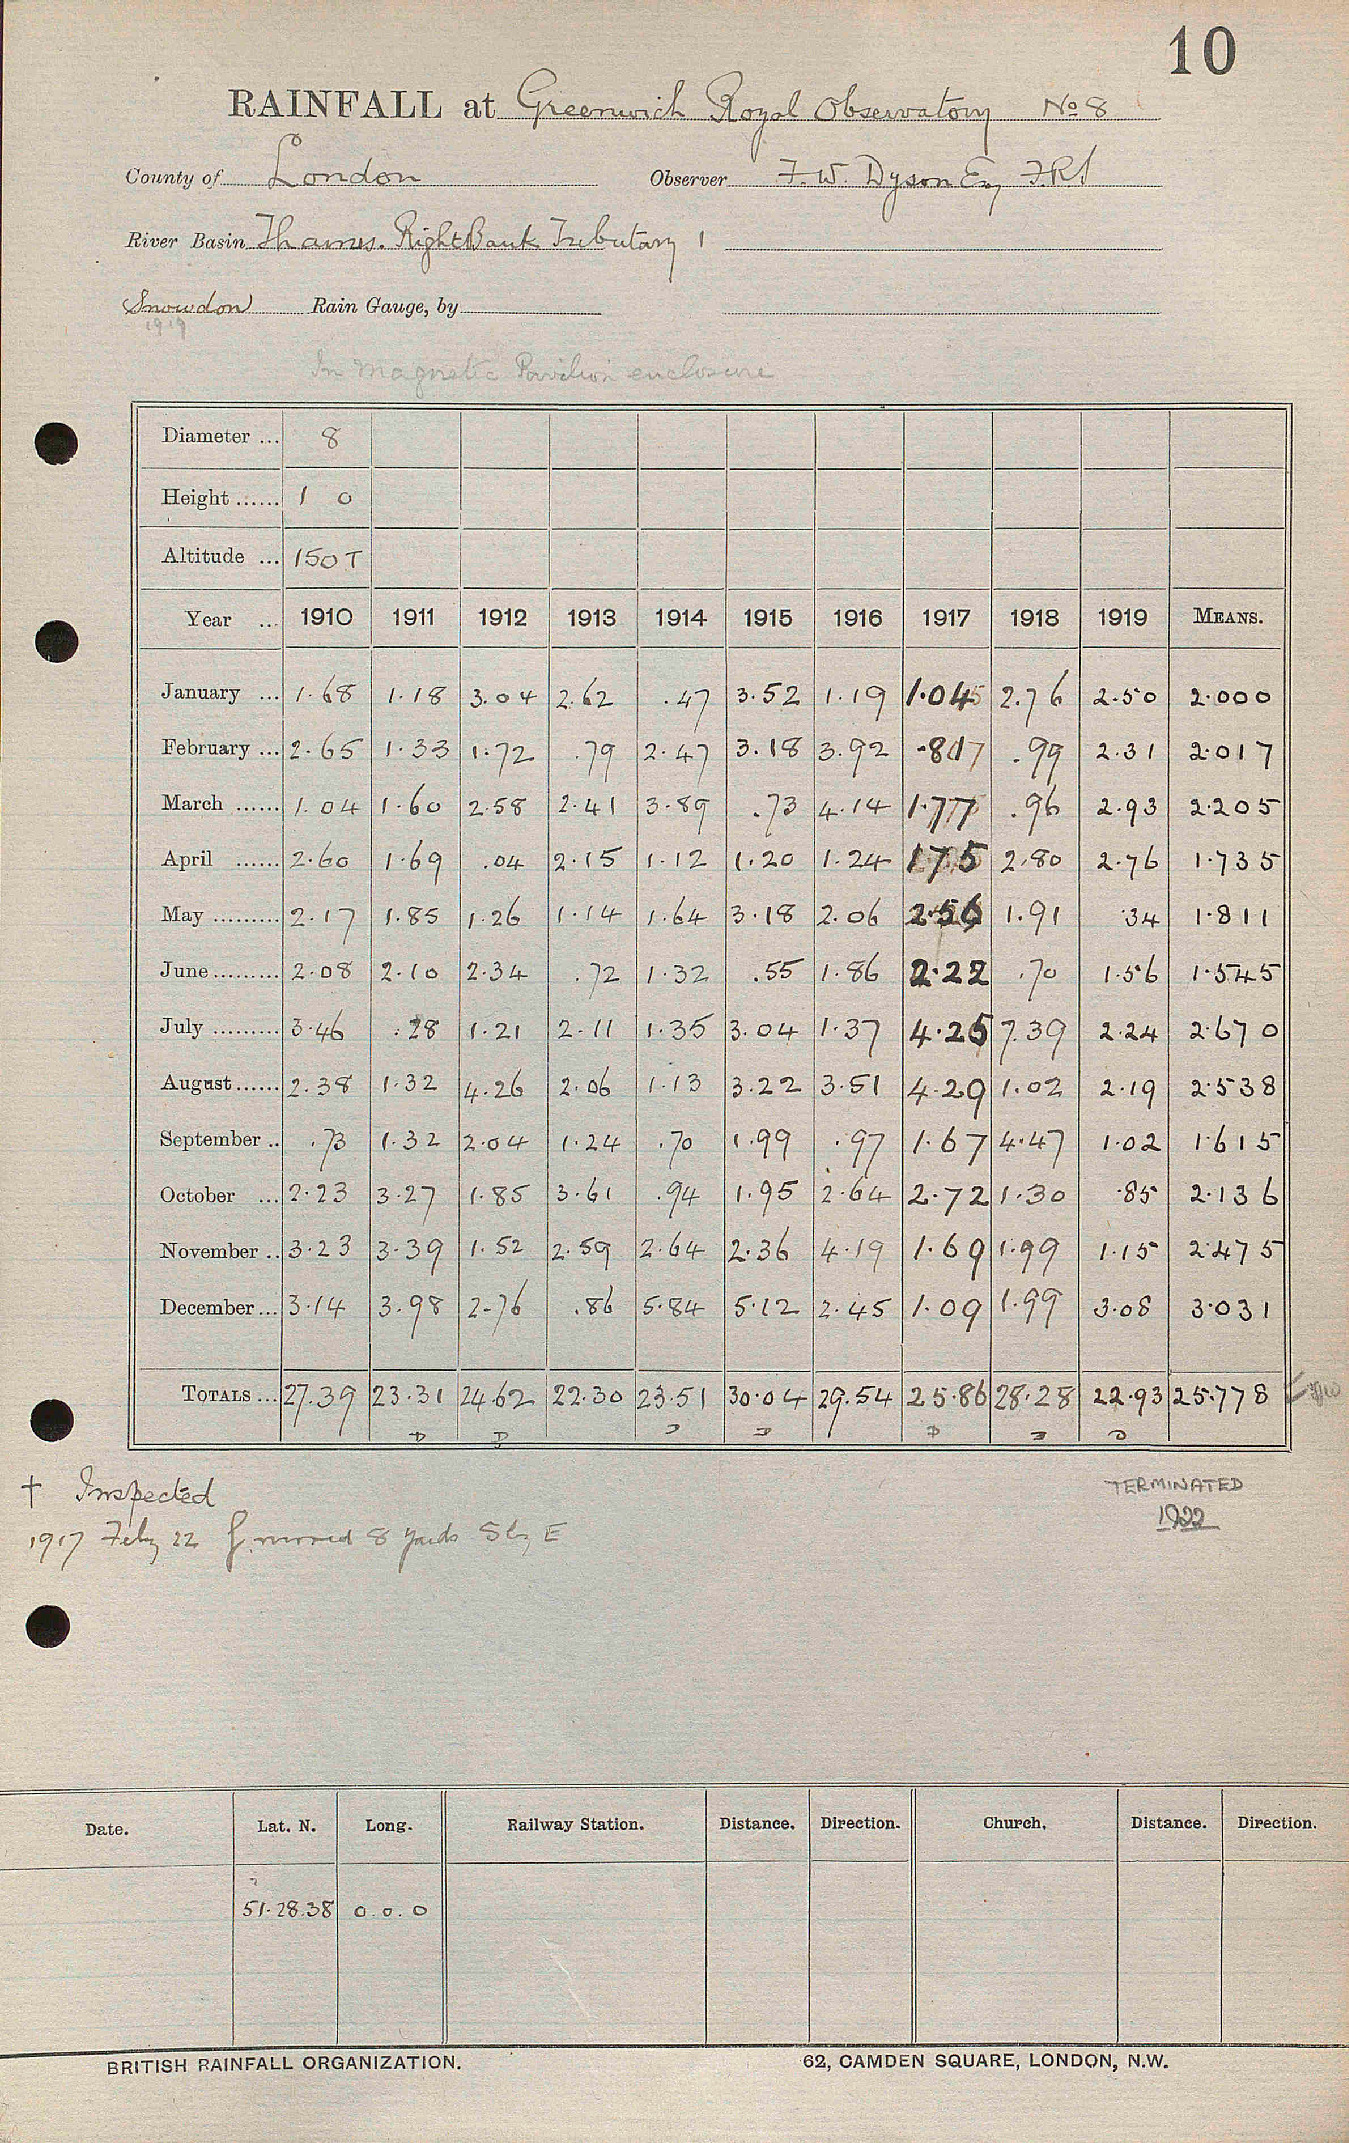 10
RAINFALL at Greenwich Royal Observatory No 8
County of London Observer F. W. Dyson Esq F.R.S
River Basin Thames. Right Bank Tributary 1
Snowdon Rain Gauge, by
1919
In Magnetic Pavilion enclosure
Diameter ... 8
Height ...... 1 0
Altitude ... 150 T
Year ... 1910 1911 1912 1913 1914 1915 1916 1917 1918 1919 MEANS.
January ... 1.68 1.18 3.04 2.62 .47 3.52 1.19 1.04 2.76 2.50 2.000
February ... 2.65 1.33 1.72 .79 2.47 3.18 3.92 .81 .99 2.31 2.017
March ...... 1.04 1.60 2.58 2.41 3.89 .73 4.14 1.77 .96 2.93 2.205
April ...... 2.60 1.69 .04 2.15 1.12 1.20 1.24 1.75 2.80 2.76 1.735
May ......... 2.17 1.85 1.26 1.14 1.64 3.18 2.06 2.56 1.91 .34 1.811
June ......... 2.08 2.10 2.34 .72 1.32 .55 1.86 2.22 .70 1.56 1.545
July ......... 3.46 .28 1.21 2.11 1.35 3.04 1.37 4.25 7.39 2.24 2.670
August ...... 2.38 1.32 4.26 2.06 1.13 3.22 3.51 4.29 1.02 2.19 2.538
September .. .73 1.32 2.04 1.24 .70 1.99 .97 1.67 4.47 1.02 1.615
October ... 2.23 3.27 1.85 3.61 .94 1.95 2.64 2.72 1.30 .85 2.136
November .. 3.23 3.39 1.52 2.59 2.64 2.36 4.19 1.69 1.99 1.15 2.475
December ... 3.14 3.98 2.76 .86 5.84 5.12 2.45 1.09 1.99 3.08 3.031
TOTALS ... 27.39 23.31 24.62 22.30 23.51 30.04 29.54 25.86 28.28 22.93 25.778
† Inspected
TERMINATED
1922
1917 Feby 22 G. moved 8 yards S by E
Date. Lat. N. Long. Railway Station. Distance. Direction. Church. Distance. Direction.
51.28.38 0.0.0
BRITISH RAINFALL ORGANIZATION. 62, CAMDEN SQUARE, LONDON, N.W.